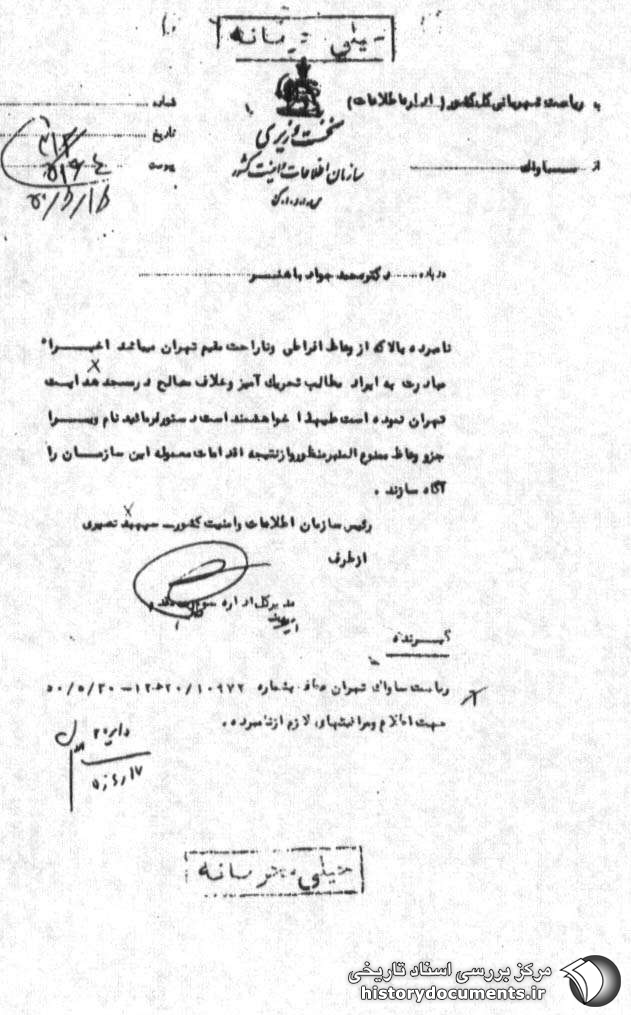 خیلی محرمانه
به ریاست شهربانی کل کشور (اداره اطلاعات)
شماره
نخست وزیری
تاریخ
سازمان اطلاعات و امنیت کشور
پیوست
از ساواک
درباره دکتر محمد جواد باهنر
نامبرده بالا که از وعاظ افراطی و ناراحت مقیم تهران میباشد اخیراً
مبادرت به ایراد مطالب تحریک آمیز و خلاف مصالح در مسجد هدایت
تهران نموده است علیهذا خواهشمند است دستور فرمائید نام ویرا
جزو وعاظ ممنوع المنبر منظور و از نتیجه اقدامات معموله این سازمان را
آگاه سازند .
رئیس سازمان اطلاعات و امنیت کشور ـ سپهبد نصیری
از طرف
مدیر کل اداره سوم
گیرنده
ریاست ساواک تهران عطف بشماره
جهت اطلاع و مراقبتهای لازم از نامبرده .
خیلی محرمانه
مرکز بررسی اسناد تاریخی
historydocuments.ir